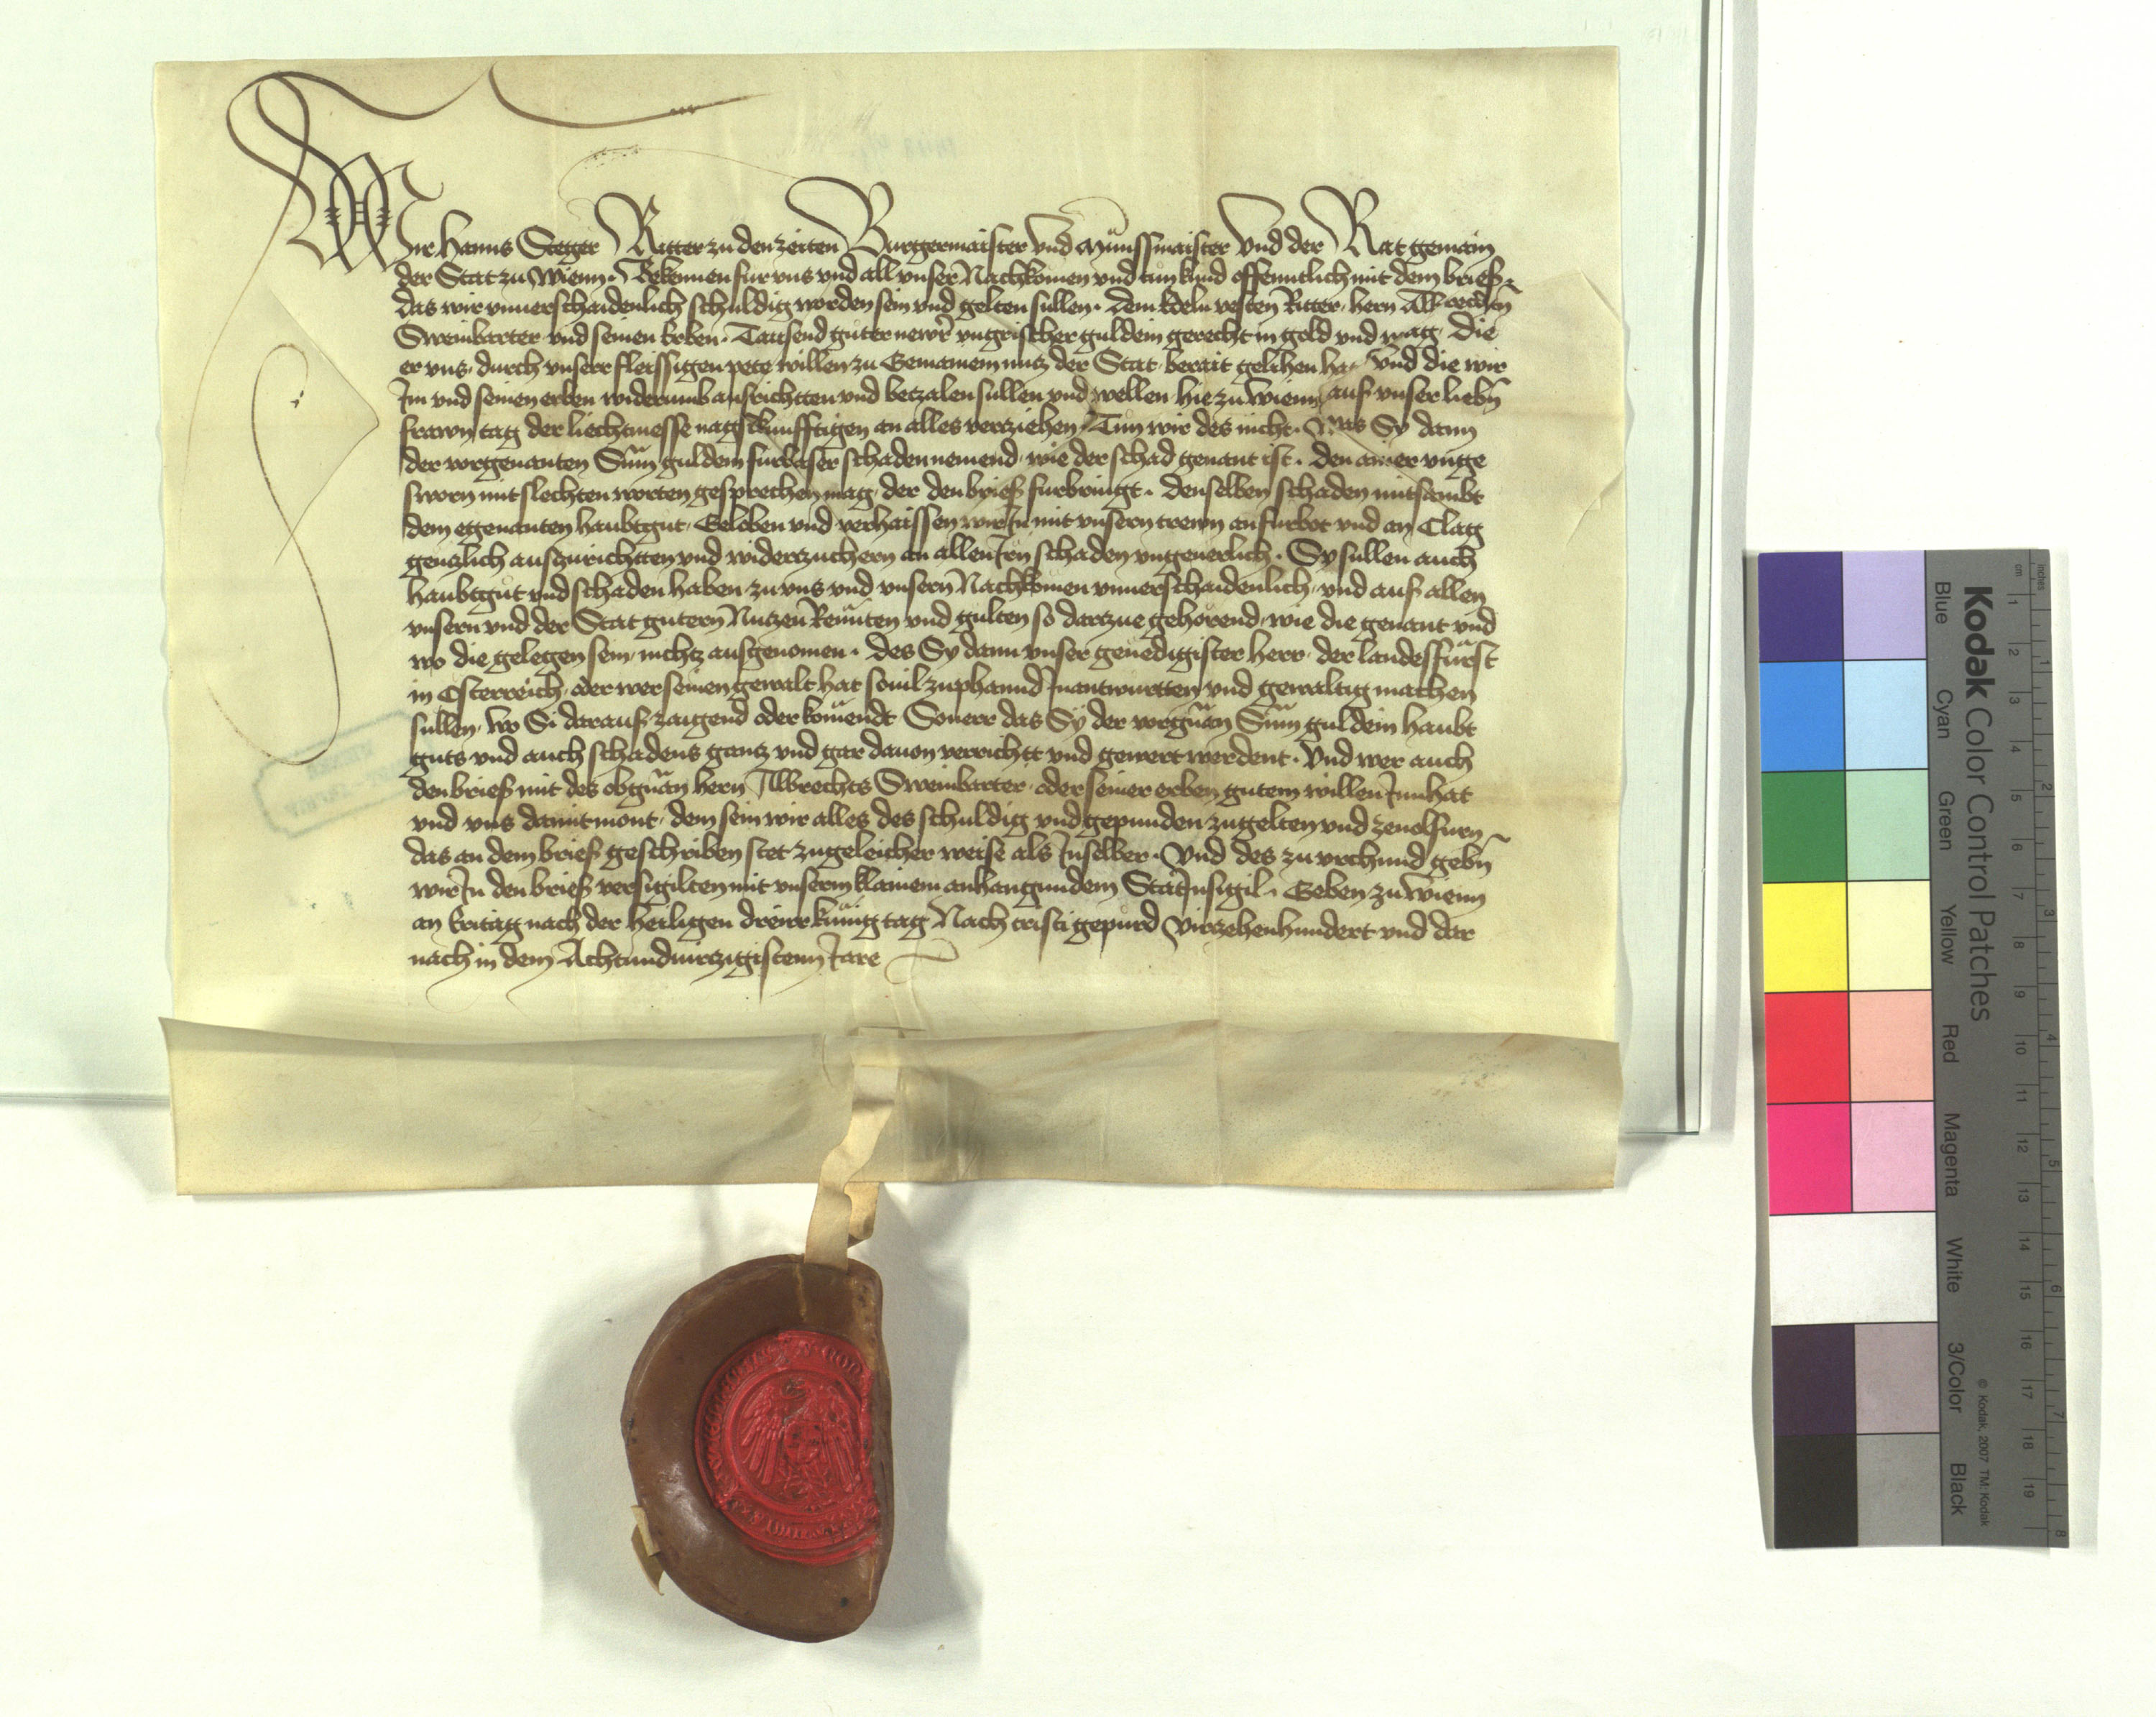 Wir Hanns Steger Ritter zu den zeiten Burgermaister vnd Münssmaister vnd der Rat gemain
der Stat zu Wienn. Bekennen fur vns vnd all vnser Nachkomen vnd tun kund offenntlich mit dem brief.
das wir vnuerschaidenlich schuldig worden sein vnd gelten sullen. dem Edeln vesten Ritter hern Albrechtn
Sweinbarter vnd seinen Erben. Tausend guter newr vngrischer guldein gerecht in gold vnd wag. Die
er vns durch vnserr fleissigen pete willen zu Gemainem nutz der Stat berait gelihen hat vnd die wir
Im vnd seinen erben widerumb ausrichtten vnd betzalen sullen vnd wellen hie zu Wienn auf vnser liebn
frawn tag der liechtmesse nagstkunfftigen an alles verziehen. Tun wir des nicht. Was Sy dann
der vorgenanten Sum guldein furbaser schaden nemend. wie der schad genant ist. den ainer vnge
sworn mit slechten worten gesprechen mag. der den brief furbringt. denselben schaden mitsambt
dem egenanten haubtgut. Geloben vnd verhaissen wir In mit vnsern trewn an furbot vnd an Clag
genzlich auszurichtten vnd widerzuchern an allen Irn schaden vngeuerlich. Sy sullen auch
haubtgut vnd schaden haben zu vns vnd vnsern Nachkomen vnuerschaidenlich. vnd auf allen
vnsern vnd der Stat gutern Nutzen Rennten vnd gulten so darzue gehörend. wie die genant vnd
wo die gelegen sein. nichtz ausgenomen. Des Sy dann vnser genedigister herr. der landesfürst
in Osterreich. oder wer seinen gewalt hat souil zuphannd Inantwurtten vnd gewaltig machen
sullen. wo Si darauf zaigend oder koment Souerr das Sy der vorgnan Sum guldein haubt
guts vnd auch schadens ganz vnd gar dauon verrichtt vnd gewert werdent. Vnd wer auch
den brief mit des obgnan hern Albrechts Sweinbarter. oder seiner erben gutem willen Innhat
vnd vns damit mont. dem sein wir alles des schuldig vnd gepunden zugelten vnd zeuolfurn
das an dem brief geschriben stet zugeleicher weise als In selber. Vnd des zu vrchund gebn
wir In den brief versigilten mit vnserm klainem anhangundem Stat Insigil. Geben zu Wienn
an Eritag nach der Heiligen dreirr kunig tag Nach cristi gepurd Virzehenhundert vnd dar
nach in dem Achtundvirzigistenn Jare
Kodak Color Control Patches
Blue
Cyan
Green
Yellow
Red
Magenta
White
3/Color
Black
© Kodak, 2007 TM: Kodak
inches
cm
1
2
3
4
5
6
7
8
9
10
11
12
13
14
15
16
17
18
19
1
2
3
4
5
6
7
8